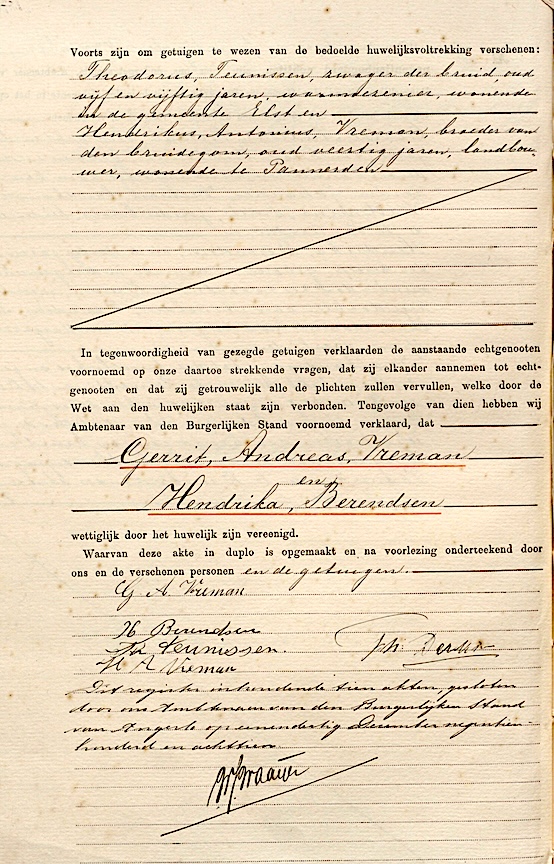 Voorts zijn om getuigen te wezen van de bedoelde huwelijksvoltrekking verschenen:
Theodorus, Teunissen, zwager der bruid, oud
vijf en vijftig jaren, warmoezenier, wonende
in de gemeente Elst en
Hendrikus, Antonius, Vreman, broeder van
den bruidegom, oud veertig jaren, landbou-
wer, wonende te Pannerden
In tegenwoordigheid van gezegde getuigen verklaarden de aanstaande echtgenooten
voornoemd op onze daartoe strekkende vragen, dat zij elkander aannemen tot echt-
genooten en dat zij getrouwelijk alle de plichten zullen vervullen, welke door de
Wet aan den huwelijken staat zijn verbonden. Tengevolge van dien hebben wij
Ambtenaar van den Burgerlijken Stand voornoemd verklaard, dat
Gerrit, Andreas, Vreman
en
Hendrika, Berendsen
wettiglijk door het huwelijk zijn vereenigd.
Waarvan deze akte in duplo is opgemaakt en na voorlezing onderteekend door
ons en de verschenen personen en de getuigen.
G A Vreman
H Berendsen
Th Teunissen.
Th. Derks
H A Vreman
Dit register inhoudende tien akten, gesloten
door ons Ambtenaar van den Burgerlijken Stand
van Angerlo op eenendertig December negentien
honderd en achttien.